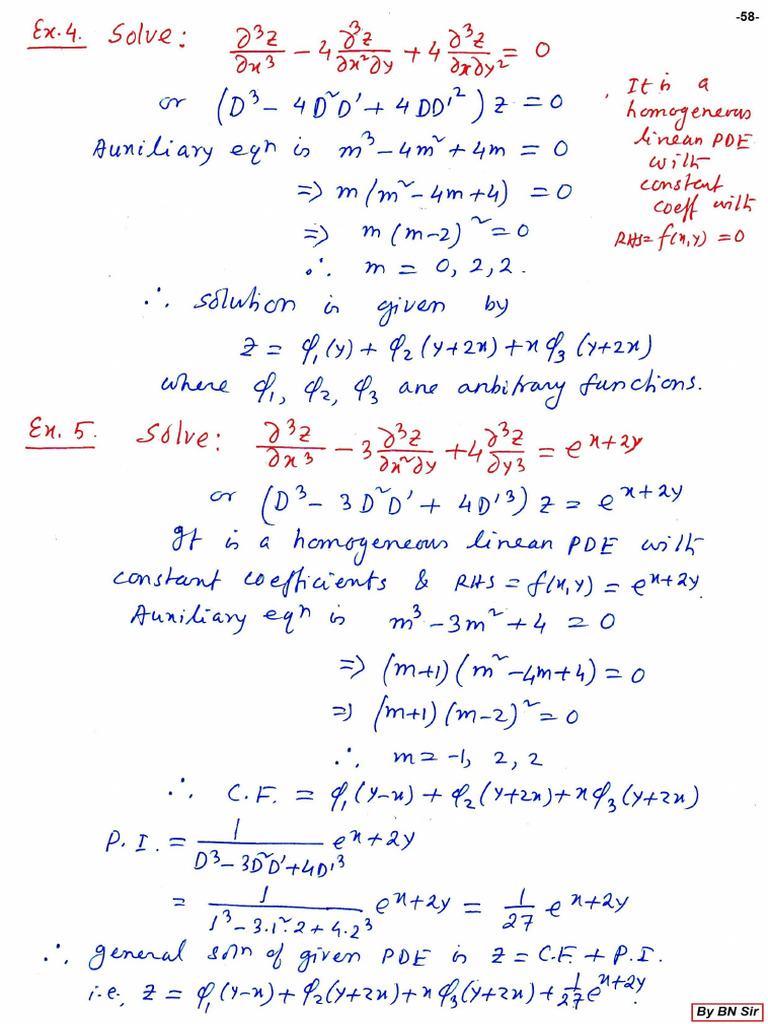 -58-
Ex.4. Solve: ∂³z/∂x³ − 4 ∂³z/∂x²∂y + 4 ∂³z/∂x∂y² = 0
or (D³ − 4D²D' + 4DD'²) z = 0
It is a
homogeneous
linear PDE
with
constant
coeff with
RHS = f(x,y) = 0
Auxiliary eqⁿ is m³ − 4m² + 4m = 0
⇒ m(m² − 4m + 4) = 0
⇒ m(m−2)² = 0
∴ m = 0, 2, 2.
∴ solution is given by
z = φ₁(y) + φ₂(y+2x) + xφ₃(y+2x)
where φ₁, φ₂, φ₃ are arbitrary functions.
Ex. 5. Solve: ∂³z/∂x³ − 3 ∂³z/∂x²∂y + 4 ∂³z/∂y³ = e^(x+2y)
or (D³ − 3D²D' + 4D'³) z = e^(x+2y)
It is a homogeneous linear PDE with
constant coefficients & RHS = f(x,y) = e^(x+2y).
Auxiliary eqⁿ is m³ − 3m² + 4 = 0
⇒ (m+1)(m² − 4m + 4) = 0
⇒ (m+1)(m−2)² = 0
∴ m = −1, 2, 2
∴ C.F. = φ₁(y−x) + φ₂(y+2x) + xφ₃(y+2x)
P.I. = 1/(D³ − 3D²D' + 4D'³) e^(x+2y)
= 1/(1³ − 3.1².2 + 4.2³) e^(x+2y) = 1/27 e^(x+2y)
∴ general solⁿ of given PDE is z = C.F. + P.I.
i.e., z = φ₁(y−x) + φ₂(y+2x) + xφ₃(y+2x) + 1/27 e^(x+2y).
By BN Sir